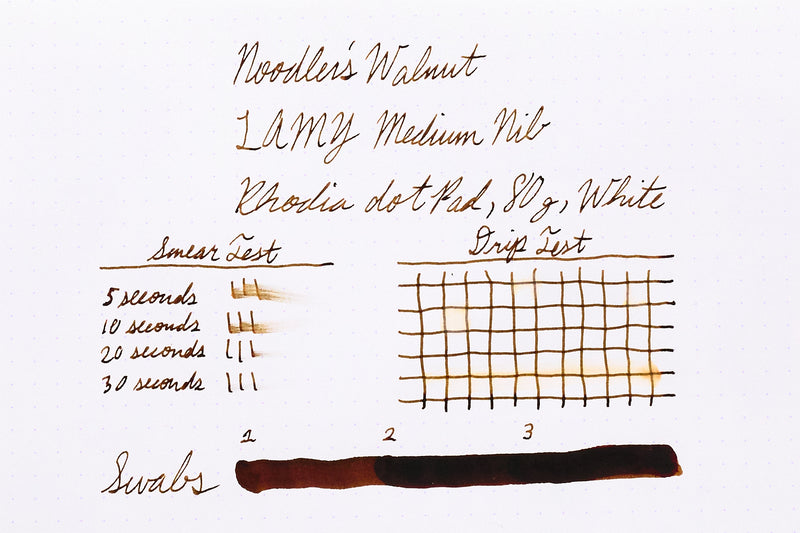 Noodler's Walnut
LAMY Medium Nib
Rhodia dot Pad, 80g, White
Smear Test
Drip Test
5 seconds
10 seconds
20 seconds
30 seconds
1 2 3
Swabs